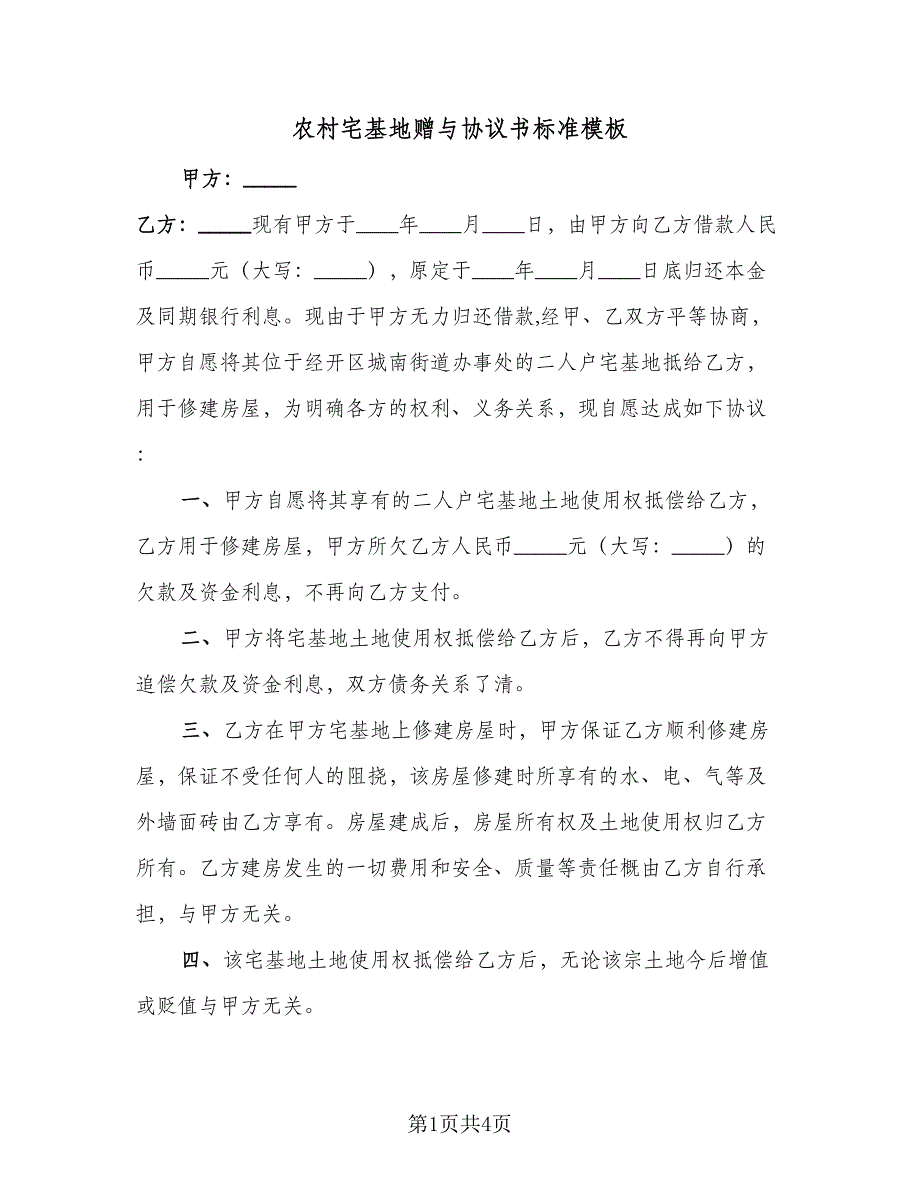 农村宅基地赠与协议书标准模板
甲方：_____
乙方：_____现有甲方于____年____月____日，由甲方向乙方借款人民
币_____元（大写：_____），原定于____年____月____日底归还本金
及同期银行利息。现由于甲方无力归还借款,经甲、乙双方平等协商，
甲方自愿将其位于经开区城南街道办事处的二人户宅基地抵给乙方，
用于修建房屋，为明确各方的权利、义务关系，现自愿达成如下协议
：
一、甲方自愿将其享有的二人户宅基地土地使用权抵偿给乙方，
乙方用于修建房屋，甲方所欠乙方人民币_____元（大写：_____）的
欠款及资金利息，不再向乙方支付。
二、甲方将宅基地土地使用权抵偿给乙方后，乙方不得再向甲方
追偿欠款及资金利息，双方债务关系了清。
三、乙方在甲方宅基地上修建房屋时，甲方保证乙方顺利修建房
屋，保证不受任何人的阻挠，该房屋修建时所享有的水、电、气等及
外墙面砖由乙方享有。房屋建成后，房屋所有权及土地使用权归乙方
所有。乙方建房发生的一切费用和安全、质量等责任概由乙方自行承
担，与甲方无关。
四、该宅基地土地使用权抵偿给乙方后，无论该宗土地今后增值
或贬值与甲方无关。
第1页共4页